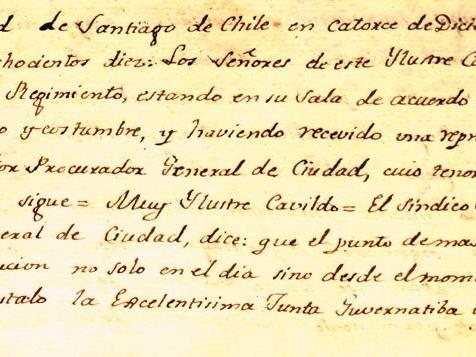 d de Santiago de Chile en catorce de Dici
chocientos diez: Los Señores de este Ylustre Ca
Regimiento, estando en su Sala de acuerdo
o y costumbre, y haviendo recevido una repr
or Procurador General de Ciudad, cuio tenor
sigue = Muy Ylustre Cavildo = El sindico
eral de Ciudad, dice: que el punto de mas
ucion no solo en el dia sino desde el mom
stalo la Excelentisima Junta Guvernatiba